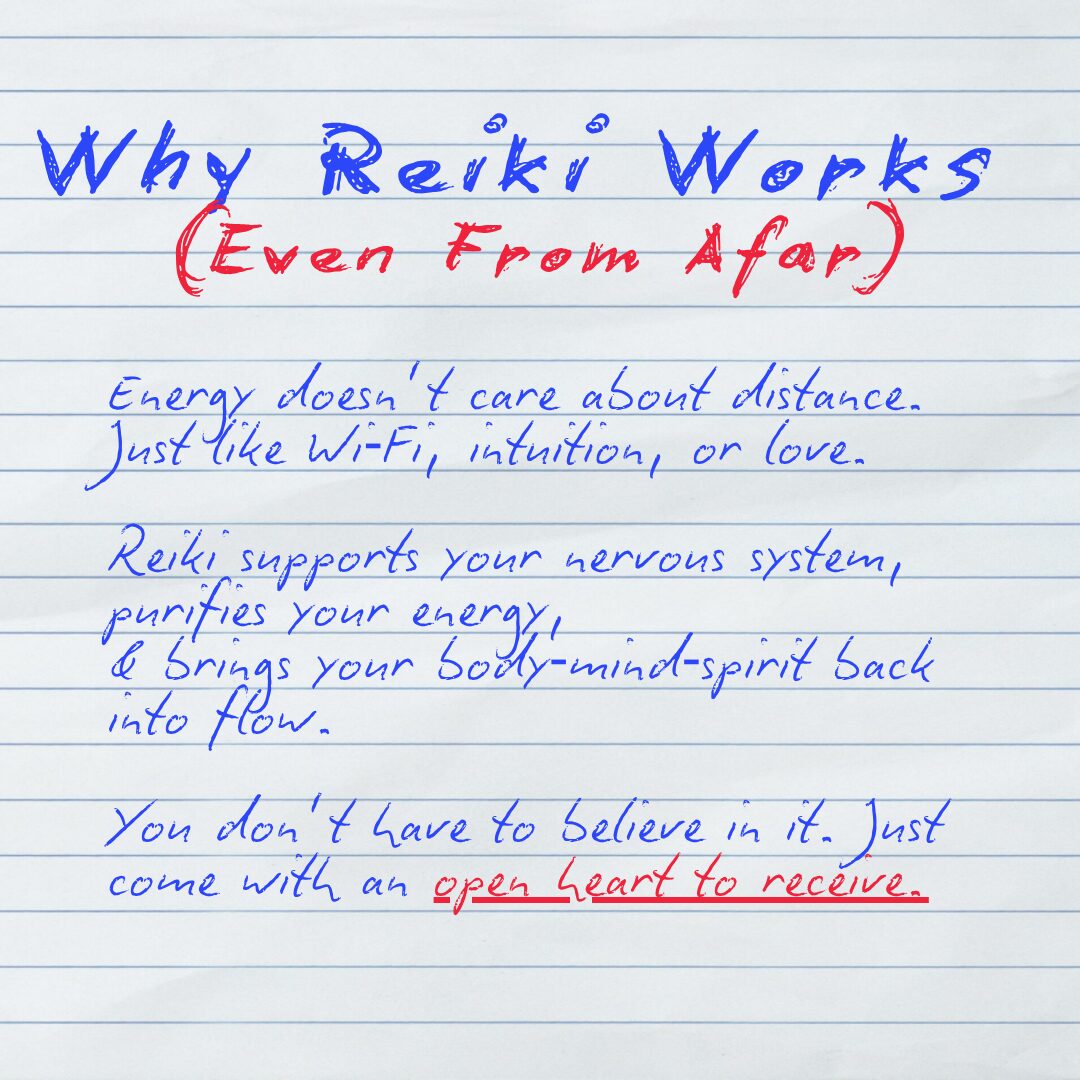 Why Reiki Works
(Even From Afar)
Energy doesn't care about distance.
Just like Wi-Fi, intuition, or love.
Reiki supports your nervous system,
purifies your energy,
& brings your body-mind-spirit back
into flow.
You don't have to believe in it. Just
come with an open heart to receive.